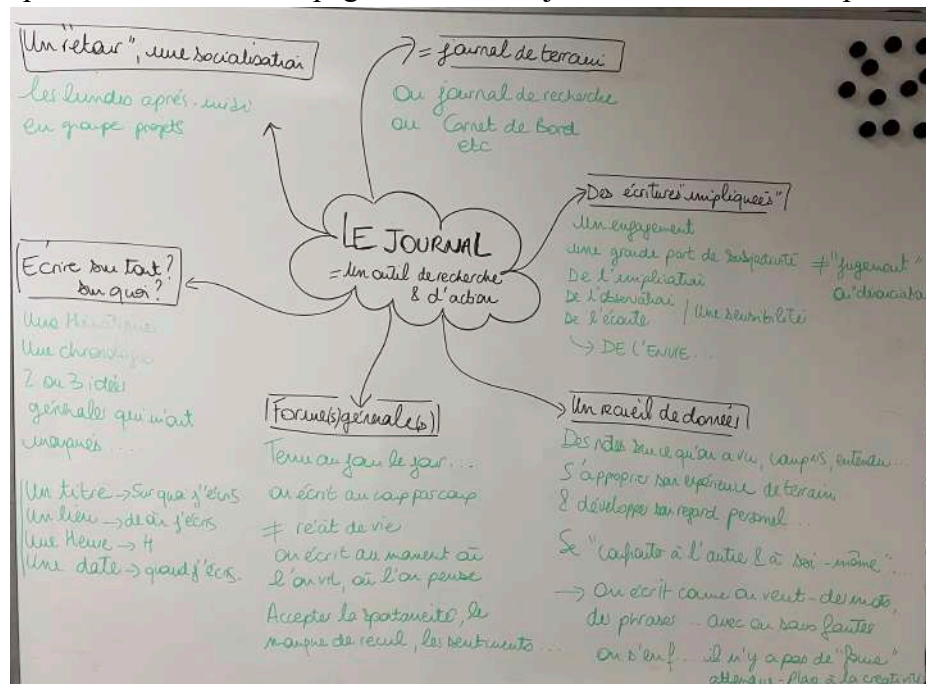 Un "retour", une socialisation
les lundis après-midi
en groupe projets
= journal de terrain
Ou journal de recherche
ou Carnet de Bord
etc
LE JOURNAL
= Un outil de recherche
& d'action
Des écritures "impliquées"
Un engagement
une grande part de subjectivité ≠ "jugement"
De l'implication
De l'observation
De l'écoute / Une sensibilité
↳ DE L'ENVIE...
Ecrire sur tout?
sur quoi?
Une thématique
Une
2 ou 3 idées
générales qui m'ont
marqués....
Un titre → Sur quoi j'écris
Un lieu → de où j'écris
Une Heure → H
Une date → quand j'écris.
Forme(s) générale(s)
Tenu au jour le jour...
on écrit au coup par coup
≠ récit de vie
on écrit au moment où
l'on vit, où l'on pense
Accepter la spontaneité, le
manque de recul, les sentiments...
Un recueil de données
Des notes sur ce qu'on a vu, compris, entendu...
S'approprier son expérience de terrain
& développer son regard personnel...
Se "confronter à l'autre & à soi-même"...
→ On écrit comme on veut - des mots,
des phrases... avec ou sans fautes
on s'en f... il n'y a pas de "forme"
attendue - Place à la créativité